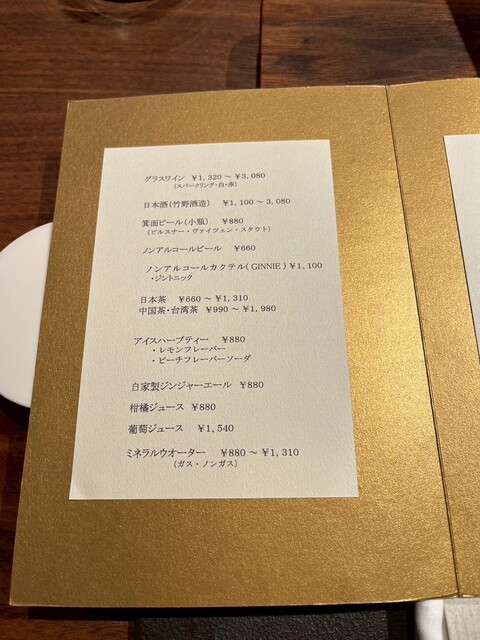 グラスワイン ¥1,320 ～ ¥3,080
(スパークリング・白・赤)
日本酒(竹野酒造) ¥1,100 ～ 3,080
箕面ビール(小瓶) ¥880
(ピルスナー・ヴァイツェン・スタウト)
ノンアルコールビール ¥660
ノンアルコールカクテル( GINNIE ) ¥1,100
・ジントニック
日本茶 ¥660 ～ ¥1,310
中国茶・台湾茶 ¥990 ～ ¥1,980
アイスハーブティー ¥880
・レモンフレーバー
・ピーチフレーバーソーダ
自家製ジンジャーエール ¥880
柑橘ジュース ¥880
葡萄ジュース ¥1,540
ミネラルウオーター ¥880 ～ ¥1,310
(ガス・ノンガス)